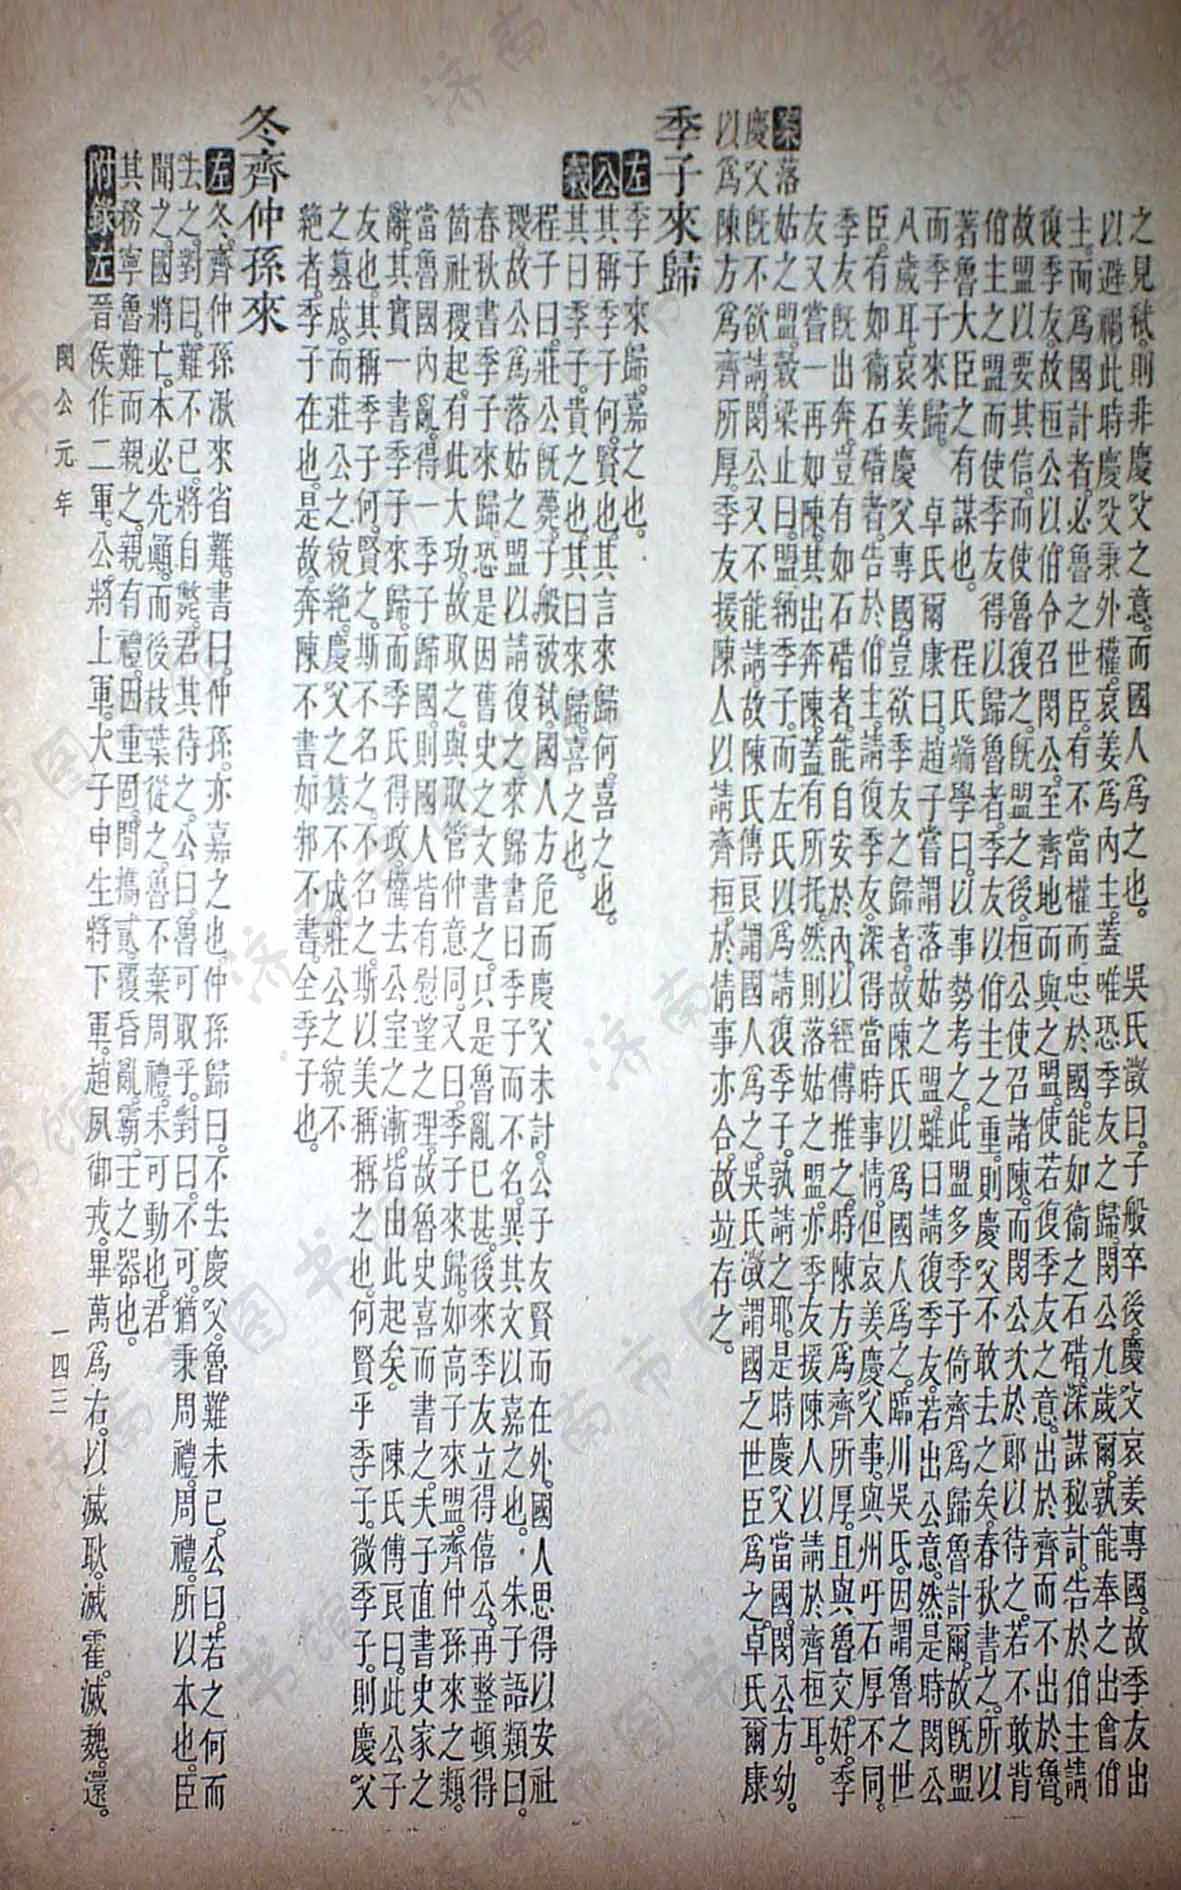 之見弒則非慶父之意而國人爲之也。　吳氏澂曰子般卒後慶父哀姜專國故季友出
以避禍此時慶父秉外權哀姜爲內主蓋唯恐季友之歸閔公九歲爾孰能奉之出會伯
主而爲國計者必魯之世臣有不當權而忠於國能如衞之石碏深謀秘計告於伯主請
復季友故桓公以伯令召閔公至齊地而與之盟使若復季友之意出於齊而不出於魯
故盟以要其信而使魯復之既盟之後桓公使召諸陳而閔公次於郎以待之若不敢背
伯主之盟而使季友得以歸魯者季友以伯主之重則慶父不敢去之矣春秋書之所以
著魯大臣之有謀也。　程氏端學曰以事勢考之此盟多季子倚齊爲歸魯計爾故既盟
而季子來歸。　卓氏爾康曰趙子嘗謂落姑之盟雖曰請復季友若出公意然是時閔公
八歲耳哀姜慶父專國豈欲季友之歸者故陳氏以爲國人爲之臨川吳氏因謂魯之世
臣有如衞石碏者告於伯主請復季友深得當時事情但哀姜慶父事與州吁石厚不同
季友既出奔豈有如石碏者能自安於內以經傳推之時陳方爲齊所厚且與魯交好季
友又嘗一再如陳其出奔陳蓋有所托然則落姑之盟亦季友援陳人以請於齊桓耳。
案落姑之盟穀梁止曰盟納季子而左氏以爲請復季子孰請之耶是時慶父當國閔公方幼
慶父既不欲請閔公又不能請故陳氏傅良謂國人爲之吳氏澂謂國之世臣爲之卓氏爾康
以爲陳方爲齊所厚季友援陳人以請齊桓於情事亦合故竝存之。
季子來歸
左季子來歸嘉之也。
公其稱季子何賢也其言來歸何喜之也。
穀其曰季子貴之也其曰來歸喜之也。
程子曰莊公既薨子般被弒國人方危而慶父未討公子友賢而在外國人思得以安社
稷故公爲落姑之盟以請復之來歸書曰季子而不名異其文以嘉之也。　朱子語類曰
春秋書季子來歸恐是因舊史之文書之只是魯亂已甚後來季友立得僖公再整頓得
箇社稷起有此大功故取之與取管仲意同又曰季子來歸如高子來盟齊仲孫來之類
當魯國內亂得一季子歸國則國人皆有慰望之理故魯史喜而書之夫子直書史家之
辭其實一書季子來歸而季氏得政權去公室之漸皆由此起矣。　陳氏傅良曰此公子
友也其稱季子何賢之斯不名之不名之斯以美稱稱之也何賢乎季子微季子則慶父
之篡成而莊公之統絶慶父之篡不成莊公之統不
絶者季子在也是故奔陳不書如邾不書全季子也。
冬齊仲孫來
左冬齊仲孫湫來省難書曰仲孫亦嘉之也仲孫歸曰不去慶父魯難未已公曰若之何而
去之對曰難不已將自斃君其待之公曰魯可取乎對曰不可猶秉周禮周禮所以本也臣
聞之國將亡本必先顚而後枝葉從之魯不棄周禮未可動也君
其務寧魯難而親之親有禮因重固間攜貳覆昏亂霸王之器也。
附錄左晉侯作二軍公將上軍大子申生將下軍趙夙御戎畢萬爲右以滅耿滅霍滅魏還。
閔公元年
一四三